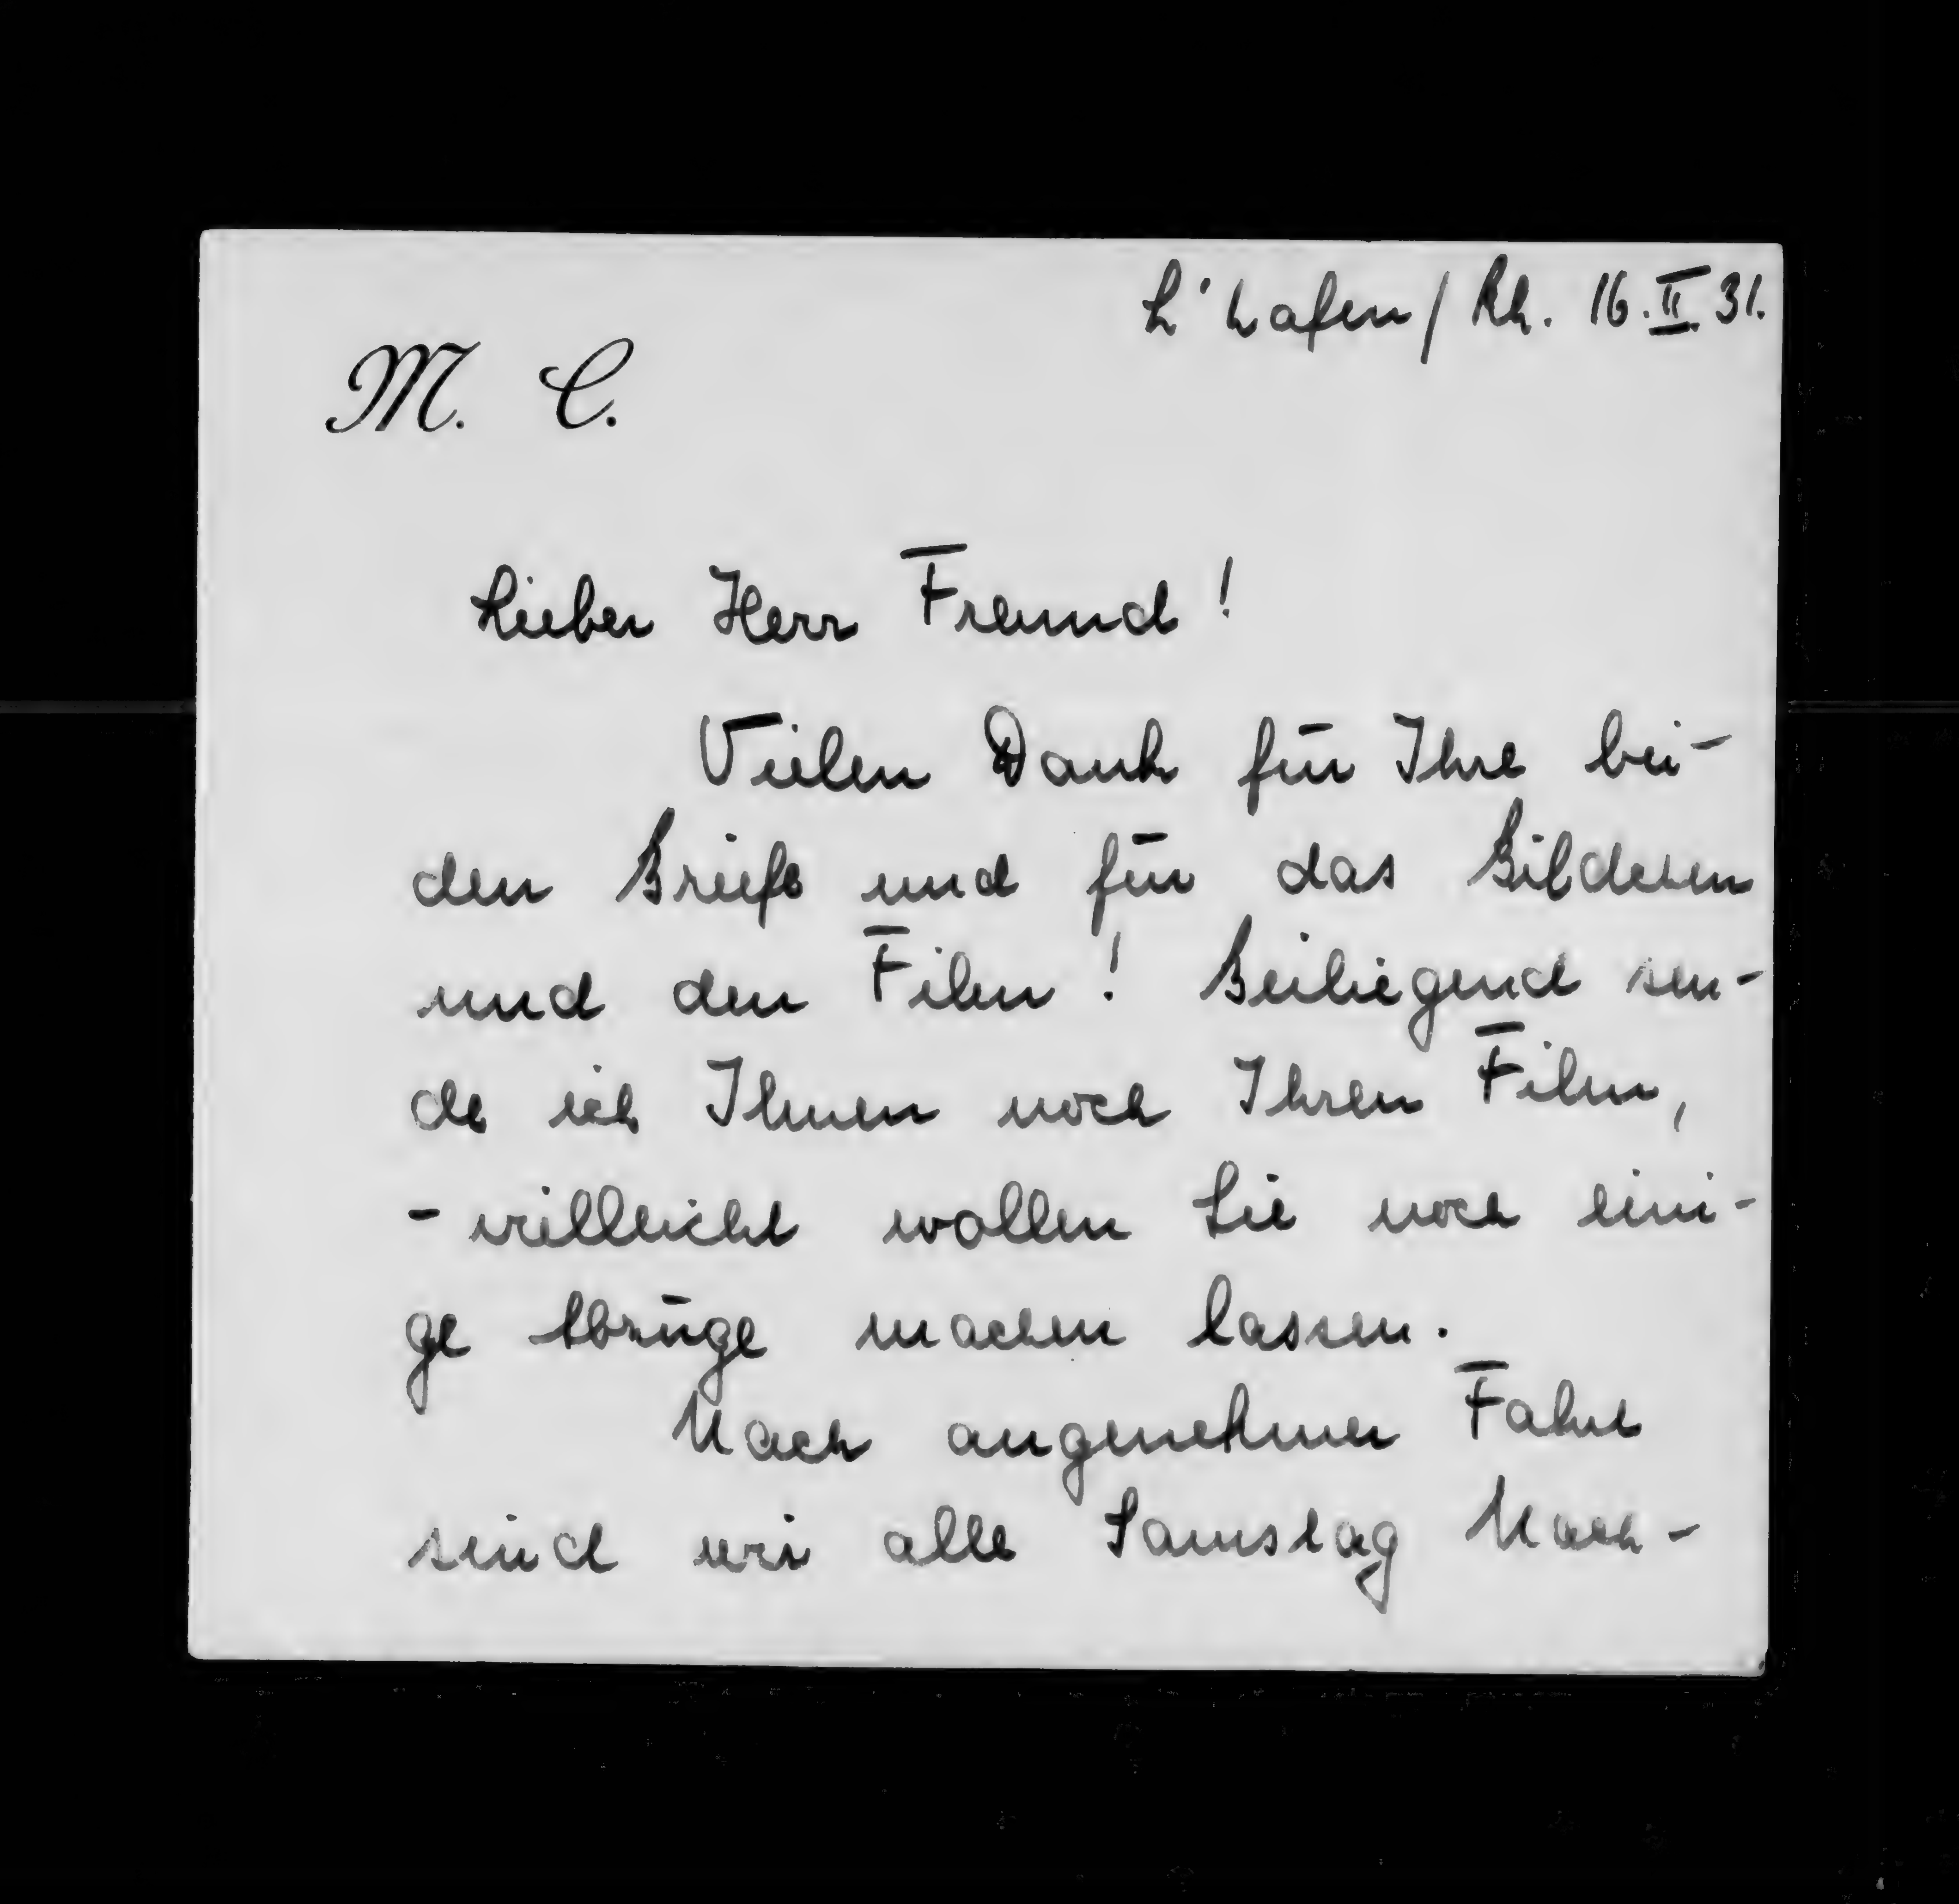 L'hafen/Rh. 16.II.31.
M. C.
Lieber Herr Freund!
Vielen Dank für Ihre bei-
den Briefe und für das Bildchen
und den Film! Beiliegend sen-
de ich Ihnen noch Ihren Film,
- vielleicht wollen Sie noch eini-
ge Abzüge machen lassen.
Nach angenehmer Fahrt
sind wir alle Samstag Nach-